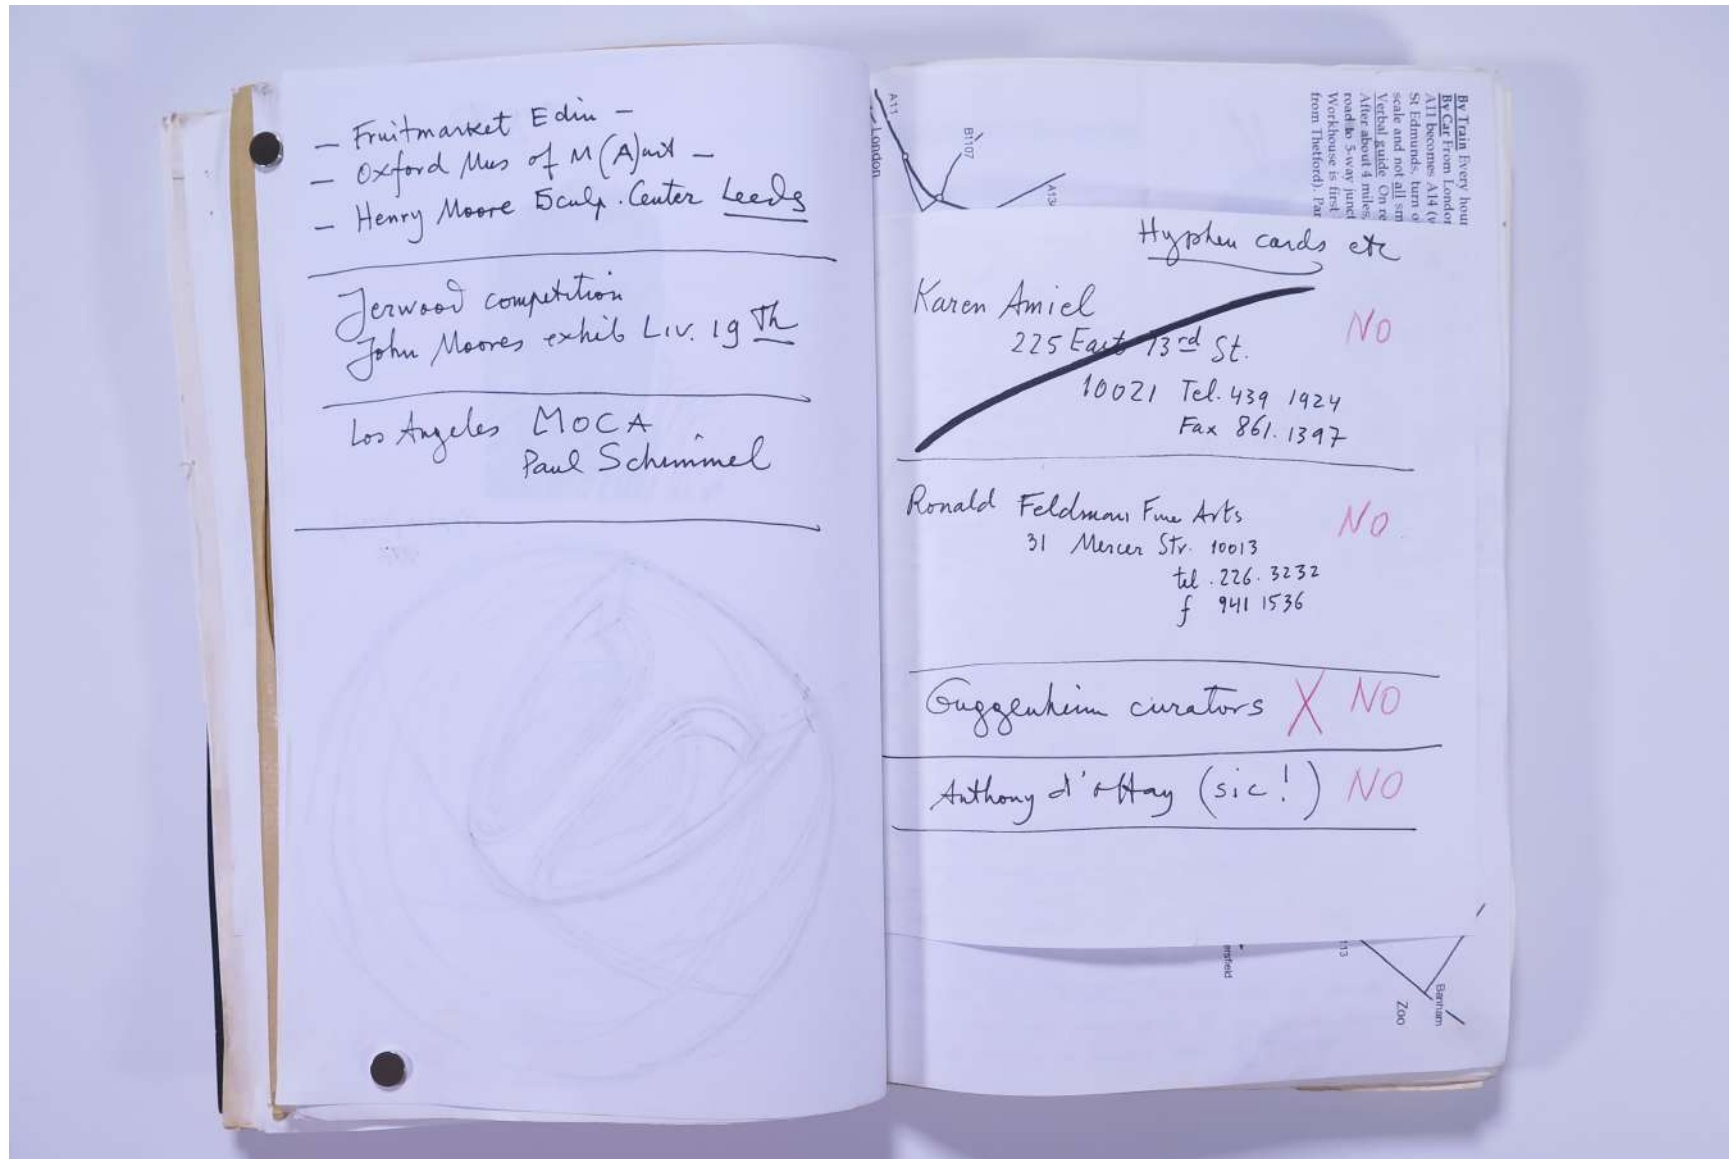 — Fruitmarket Edin —
— Oxford Mus of M(A)art —
— Henry Moore Sculp. Center Leeds
Jerwood competition
John Moores exhib Liv. 19 Th
Los Angeles MOCA
Paul Schimmel
A11
London
B1107
A134
By Train Every hour
By Car From London
A11 becomes A14 (v
St Edmunds, turn o
scale and not all sm
Verbal guide On re
After about 4 miles,
road to 5-way junct
Workhouse is first
from Thetford). Par
Hyphen cards etc
Karen Amiel NO
225 East 73rd St.
10021 Tel. 439 1924
Fax 861.1397
Ronald Feldman Fine Arts NO
31 Mercer Str. 10013
tel. 226. 3232
f 941 1536
Guggenheim curators X NO
Anthony d'offay (sic!) NO
ersfield
113
Banham
Zoo